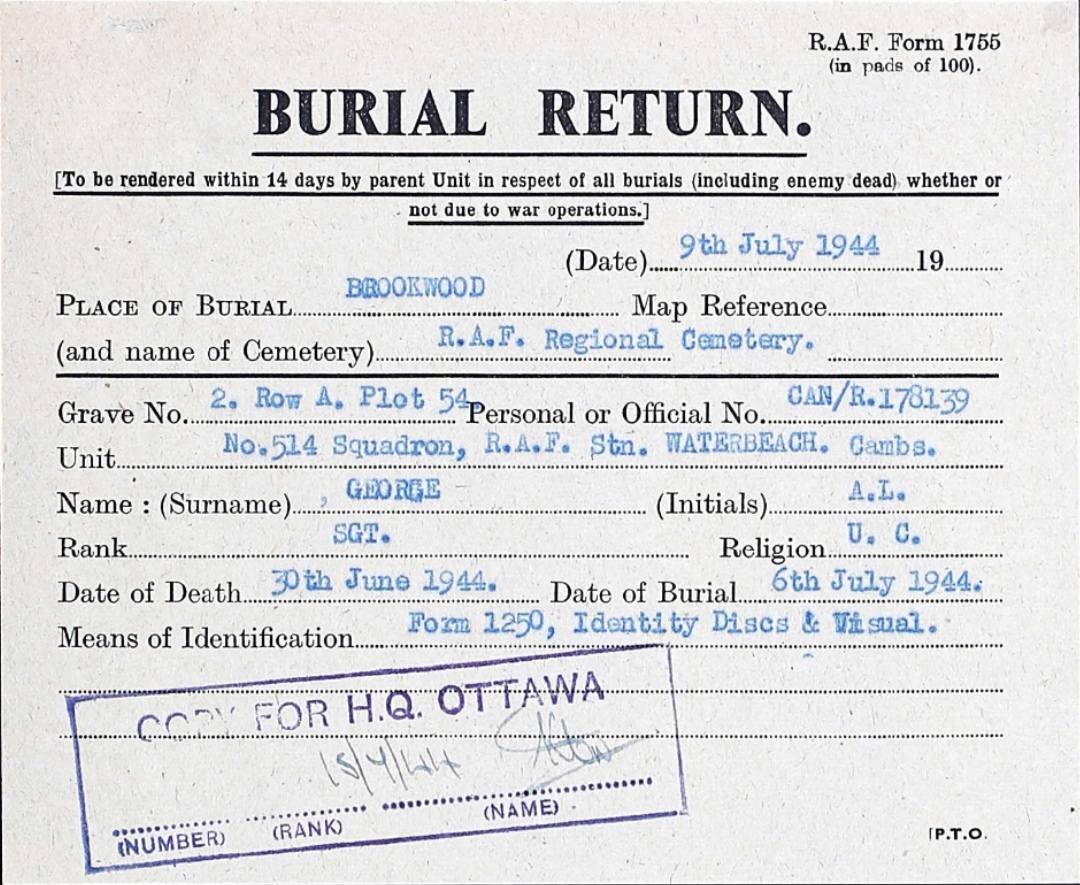 R.A.F. Form 1755
(in pads of 100).
BURIAL RETURN.
[To be rendered within 14 days by parent Unit in respect of all burials (including enemy dead) whether or
not due to war operations.]
(Date) 9th July 1944 19
PLACE OF BURIAL BROOKWOOD Map Reference
(and name of Cemetery) R.A.F. Regional Cemetery.
Grave No. 2. Row A. Plot 54 Personal or Official No. CAN/R.178139
Unit No.514 Squadron, R.A.F. Stn. WATERBEACH. Cambs.
Name : (Surname) , GEORGE (Initials) A.L.
Rank SGT. Religion U. C.
Date of Death 30th June 1944. Date of Burial 6th July 1944.
Means of Identification Form 1250, Identity Discs & Visual.
COPY FOR H.Q. OTTAWA
(NUMBER) (RANK) (NAME)
P.T.O.